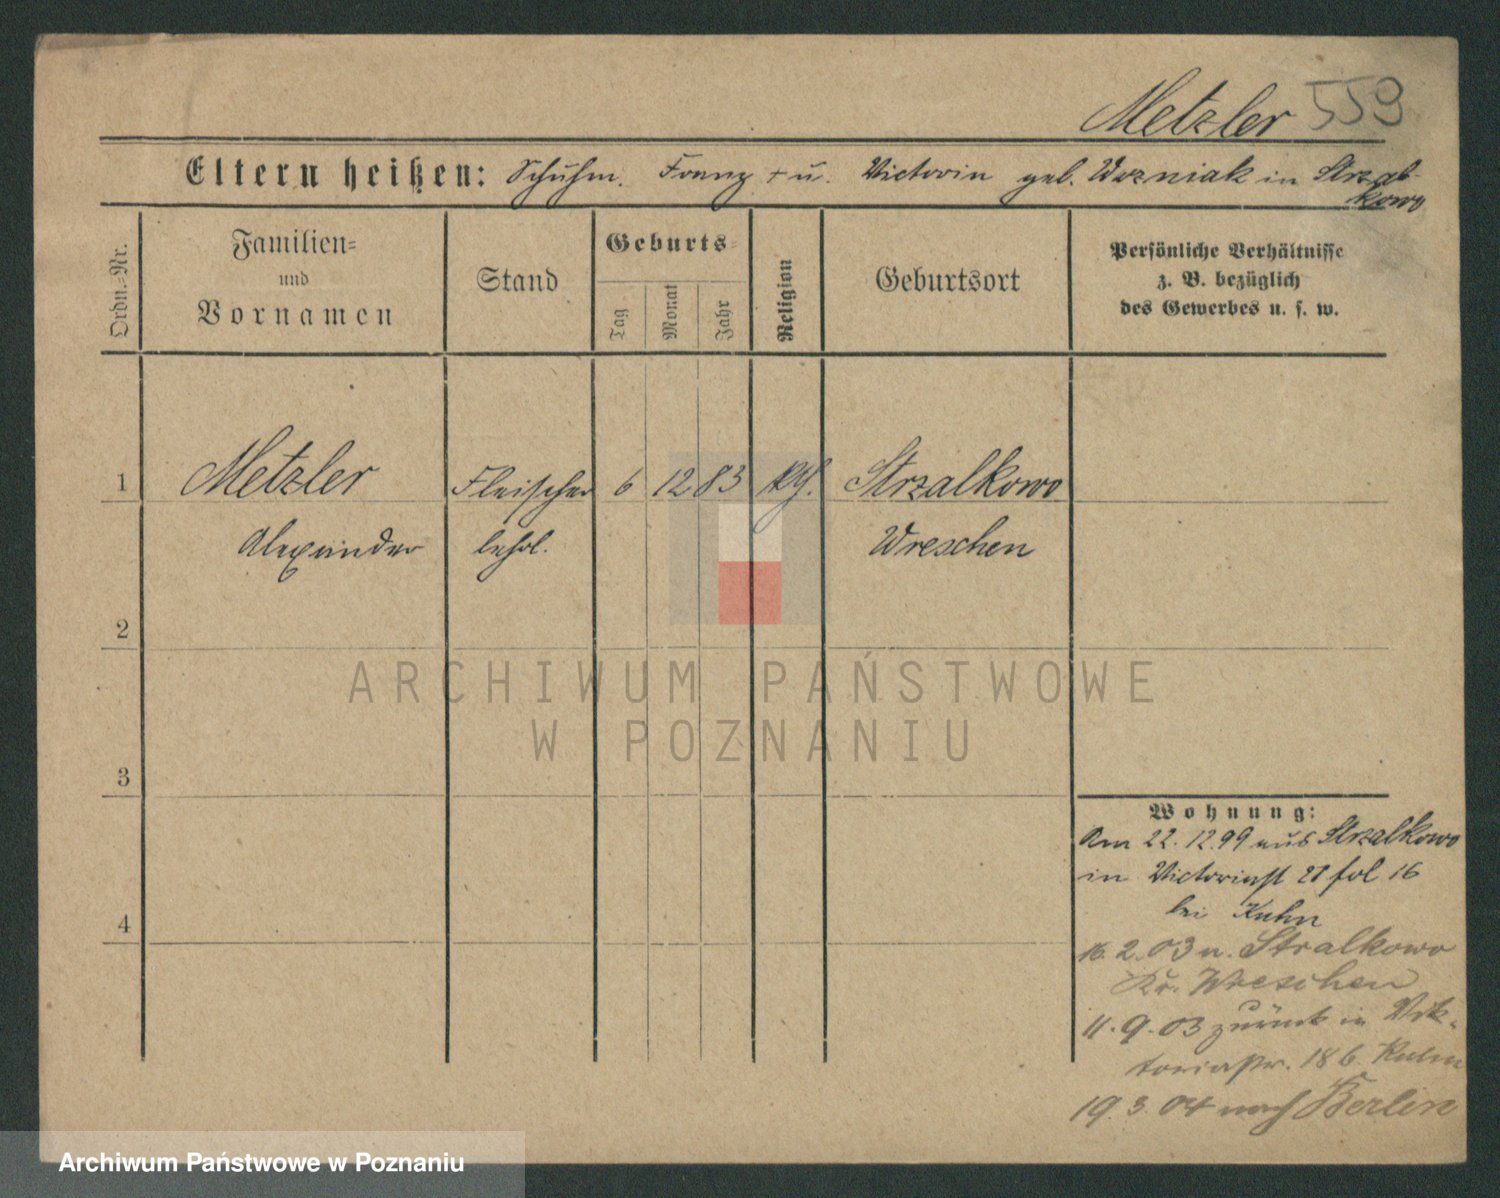 Metzler 559
Eltern heißen: Schuhm. Franz + u. Victoria geb. Wozniak in Strzal-
kowo
Ordn.-Nr.
Familien-
und
Vornamen
Stand
Geburts-
Tag
Monat
Jahr
Religion
Geburtsort
Persönliche Verhältnisse
z. B. bezüglich
des Gewerbes u. s. w.
1 Metzler Fleischer 6 12 83 kth. Strzalkowo
Alexander lehrl. Wreschen
2
ARCHIWUM PAŃSTWOWE
W POZNANIU
3
Wohnung:
Am 22.12.99 aus Strzalkowo
in Victoriast 21 fol 16
bei Kuhn
4
16.2.03 n. Stralkowo
Kr. Wreschen
11.9.03 zurück in Vik-
toriastr. 18 b. Kuhn
19.3.04 nach Berlin
Archiwum Państwowe w Poznaniu